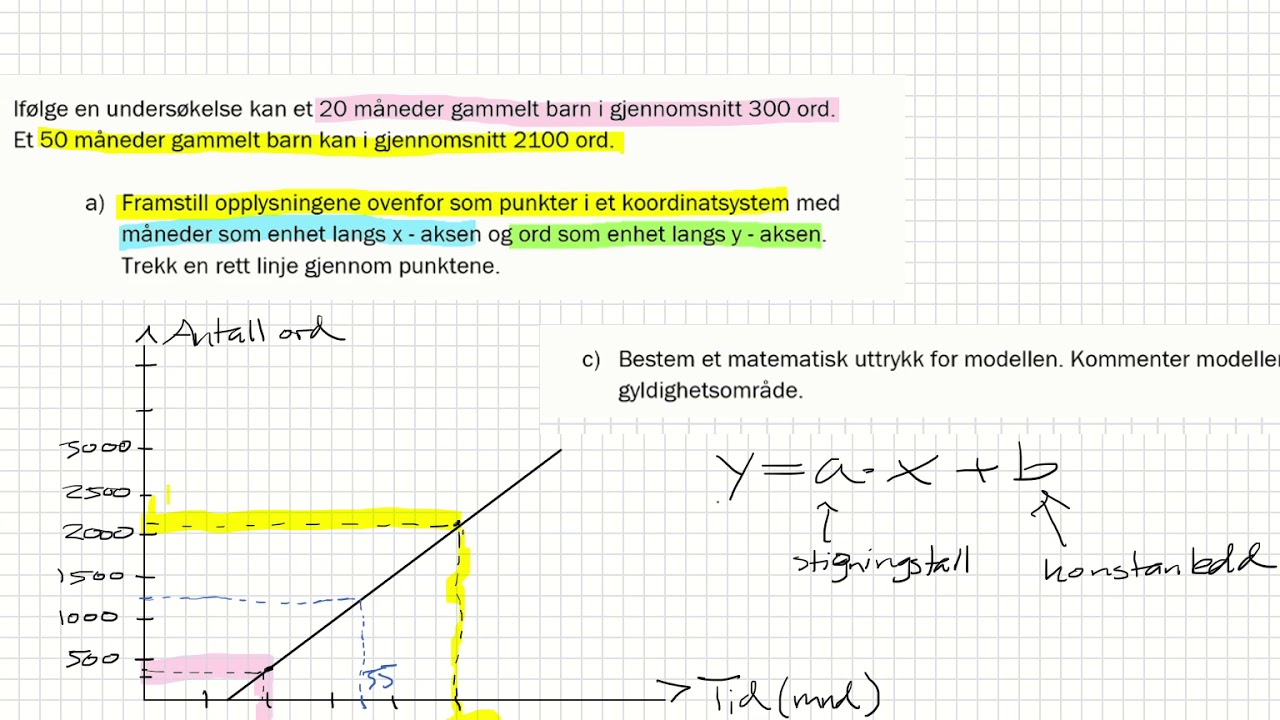 Ifølge en undersøkelse kan et 20 måneder gammelt barn i gjennomsnitt 300 ord.
Et 50 måneder gammelt barn kan i gjennomsnitt 2100 ord.
a) Framstill opplysningene ovenfor som punkter i et koordinatsystem med
måneder som enhet langs x - aksen og ord som enhet langs y - aksen.
Trekk en rett linje gjennom punktene.
Antall ord
c) Bestem et matematisk uttrykk for modellen. Kommenter modeller
gyldighetsområde.
3000
2500
2000
1500
1000
500
35
Tid (mnd)
y = a · x + b
stigningstall
konstantledd